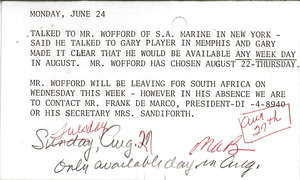 MONDAY, JUNE 24
TALKED TO MR. WOFFORD OF S.A. MARINE IN NEW YORK -
SAID HE TALKED TO GARY PLAYER IN MEMPHIS AND GARY
MADE IT CLEAR THAT HE WOULD BE AVAILABLE ANY WEEK DAY
IN AUGUST. MR. WOFFORD HAS CHOSEN AUGUST 22-THURSDAY.
MR. WOFFORD WILL BE LEAVING FOR SOUTH AFRICA ON
WEDNESDAY THIS WEEK - HOWEVER IN HIS ABSENCE WE ARE
TO CONTACT MR. FRANK DE MARCO, PRESIDENT-DI -4-8940
OR HIS SECRETARY MRS. SANDIFORTH.
Tuesday
Sunday, Aug.
Aug
27th
Only available day in Aug.